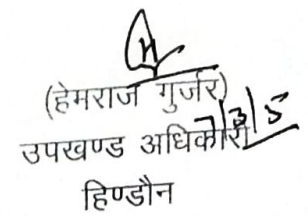 (हेमराज गुर्जर)
7/3/5
उपखण्ड अधिकारी
हिण्डौन